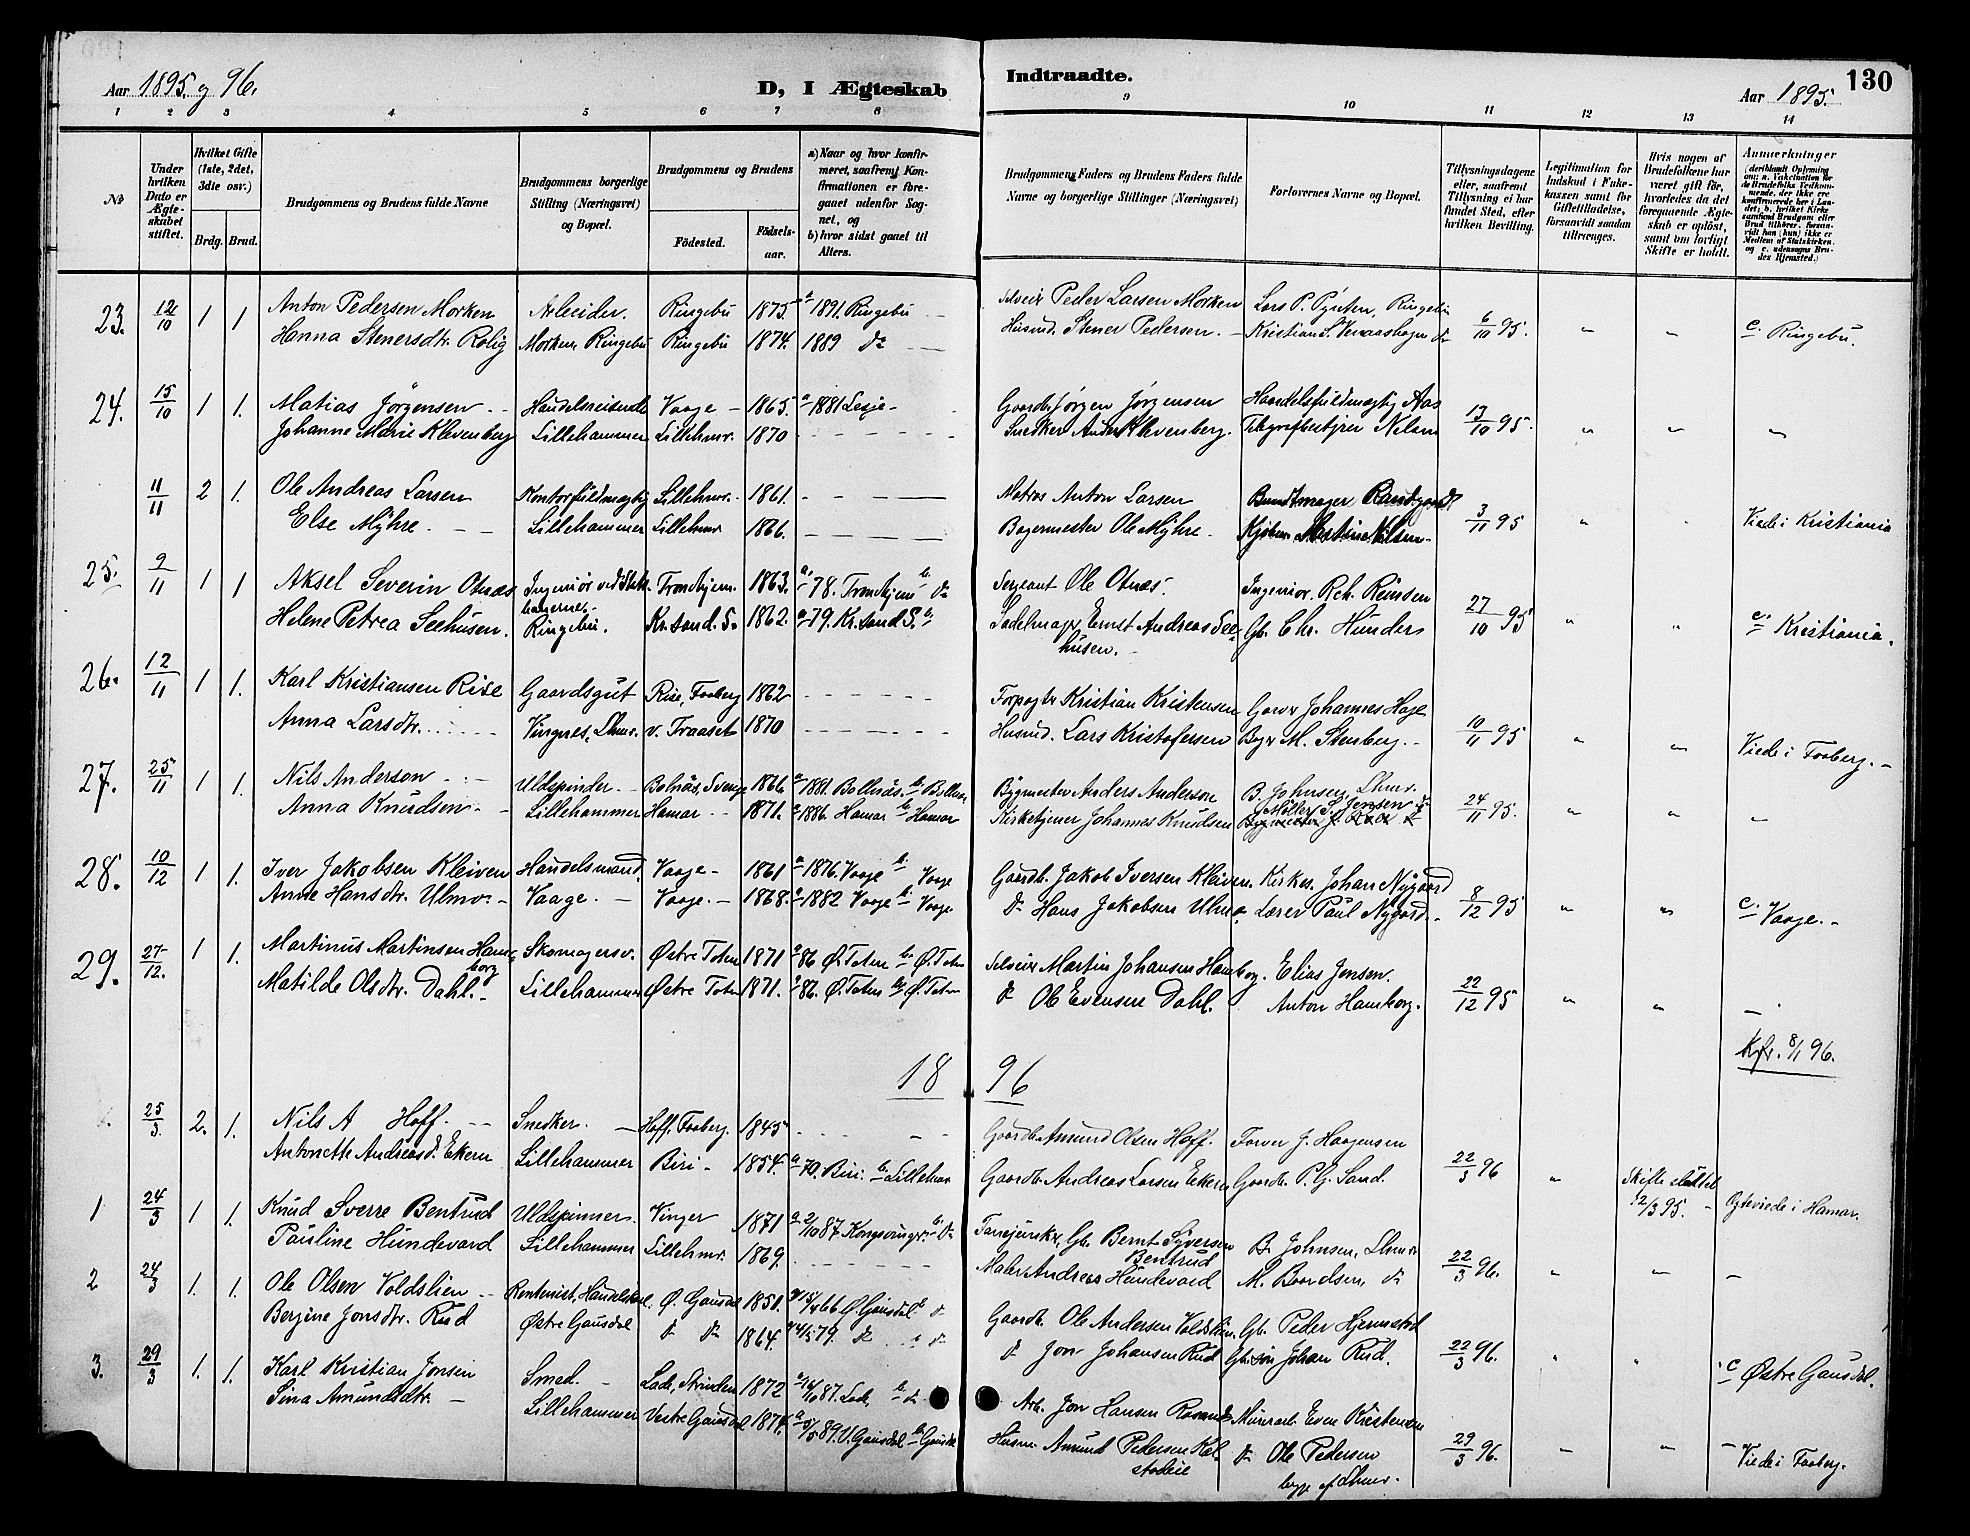 130
Aar 1895 og 96.
D, I Ægteskab
Indtraadte.
Aar 1895.
1 2 3 4 5 6 7 8 9 10 11 12 13 14
No
Under hvilken Dato er Ægteskabet stiftet.
Hvilket Gifte (1ste, 2det, 3die osv.)
Brdg. Brud.
Brudgommens og Brudens fulde Navne
Brudgommens borgerlige Stilling (Næringsvei) og Bopæl.
Brudgommens og Brudens
Fødested. Fødselsaar.
a) Naar og hvor konfirmeret, saafremt Konfirmationen er foregaaet udenfor Sognet, og
b) hvor sidst gaaet til Alters.
Brudgommens Faders og Brudens Faders fulde Navne og borgerlige Stillinger (Næringsvei)
Forlovernes Navne og Bopæl.
Tillysningsdagene eller, saafremt Tillysning ei har fundet Sted, efter hvilken Bevilling.
Legitimation for Indskud i Enkekassen samt for Giftetilladelse, forsaavidt saadan tiltrænges.
Hvis nogen af Brudefolkene har været gift før, hvorledes da det foregaaende Ægteskab er opløst, samt om forligt Skifte er holdt.
Anmærkninger (deriblandt Oplysning om: a. Vakcination for de Brudefolks Vedkommende, der ikke ere konfirmerede her i Landet; b. hvilket Kirkesamfund Brudgom eller Brud tilhører, forsaavidt han (hun) ikke er Medlem af Statskirken, og c. udensogns Brudes Hjemsted.)
23. 12/10 1 1 Anton Pedersen Morken Arbeider. Ringebu 1875 a 1891. Ringebu Selveier Peder Larsen Morken Lars P. Pynten, Ringebu 6/10 95. " " c. Ringebu.
Hanna Stenersdtr. Rolig Morken Ringebu Ringebu 1874. 1889 do Husmd. Stener Pedersen. Kristian S. do
24. 15/10 1 1. Matias Jørgensen Handelsreisende Vaage 1865. a 1881 Lesje Gaardbr. Jørgen Jørgensen Handelsfuldmægtig Aas 13/10 95. " " "
Johanne Marie Klevenberg Lillehammer Lillehmr. 1870 Snedker Anders Klevenberg. Telegrafbestyrer Nilsen
11/11 2 1. Ole Andreas Larsen Kontorfuldmægtig Lillehmr. 1861. Matros Anton Larsen Bundtmager 3/11 95 " " Viede i Kristiania
Else Myhre. Lillehammer Lillehmr. 1866. Bagermester Ole Myhre. Nilsen
25. 9/11 1 1 Aksel Severin Otnæs Ingeniør ved Stats- Trondhjem. 1863. a. 78. Trondhjem b. do Sergeant Ole Otnæs. Ingeniør. Rch. Reinsen 27/10 95 " " c. Kristiania.
Helene Petrea Seehusen. banerne. Ringebu. Kr.sand. S. 1862. a 79. Kr.sand S. b. Sadelmager Ernst Andreas Seehusen. Gb. Chr. Hunder
26. 12/11 1 1. Karl Kristiansen Rise Gaardsgut Rise, Faaberg 1862 Forpagter Kristian Kristensen Garver Johannes Hage 10/11 95 " " Viede i Faaberg.
Anna Larsdtr. Vingnes, Lhmr. v. Traaset 1870 Husmd. Lars Kristofersen Bager M. Stenberg.
27. 25/11 1 1. Nils Anderson Uldspinder. Bolnäs, Sverige 1866 a 1881. Bollnäs. b. Bollnäs Bygmester Anders Anderson B. Johnsen, Lhmr. 24/11 95. " " "
Anna Knudsen. Lillehammer Hamar 1871. a 1886. Hamar b. Hamar Kirketjener Johannes Knudsen Møller S. Jensen do
28. 10/12 1 1. Iver Jakobsen Kleiven Handelsmand. Vaage 1861 a 1876. Vaage b. Vaage Gaardb. Jakob Iversen Kleiven. Kirkes. Johan Nygaard 8/12 95 " " c. Vaage.
Anne Hansdtr. Ulmo. Vaage. Vaage. 1868. a 1882 Vaage b. Vaage. do Hans Jakobsen Ulmo. Lærer Paul Nygård.
29. 27/12. 1 1. Martinus Martinsen Hamborg Skomagersv. Østre Toten 1871 a 86 Ø. Toten b. Ø. Toten Selveier Martin Johansen Hamborg. Elias Jensen. 22/12 95 " "
Matilde Olsdtr. Dahl. Lillehammer Østre Toten 1871. a 86. Ø. Toten b. Ø. Toten do Ole Evensen Dahl. Anton Hamborg.
Kfr. 8/1 96.
18 96
25/3. 2. 1. Nils A Hoff. Snedker. Hoff, Faaberg. 1845 Gaardb. Amund Olsen Hoff. Farver J. Haagensen 22/3 96 " Skifte sluttet 12/3 95. Ogteviede i Hamar.
Antonette Andreasd. Ekern Lillehammer Biri 1854. a 70. Biri. b. Lillehmr Gaardb. Andreas Larsen Ekern Gaardb. P. G. Sand.
1 24/3 1 1. Knud Sverre Bentrud Uldspinner. Vinger 1871 a 2/10 87. Kongsvinger b. do Gb. Bernt Syversen Bentrud B. Johnsen, Lhmr 22/3 96. " " "
Pauline Hundevard Lillehammer Lillehmr. 1869. Maler Andreas Hundevard M. Baardsen, do
2 24/3 1. 1. Ole Olsen Voldslien Kontorist, Ø. Gausdal 1851. a 15/4 66 Ø. Gausdal b. do Gaardb. Ole Andersen Voldslien Gb. Peder Hjemstad 22/3 96. " " c. Østre Gausdal.
Berjine Jonsdtr. Rud Østre Gausdal do do 1864. a 4/5 79. do do do Jon Johansen Rud Gb.søn Johan Rud.
3. 29/3 1. 1. Karl Kristian Jonsen Smed. Lade, Strinden 1872 a 16/10 87. Lade, b. do Arb. Jon Hansen Murerarb. Even Kristensen 29/3 96. " " Viede i Faaberg.
Sina Amundsdtr. Lillehammer Vestre Gausdal 1874. a 5/5 89. V. Gausdal b. Gausdal Husm. Amund Pedersen do Ole Pedersen
begge af Lhmr.